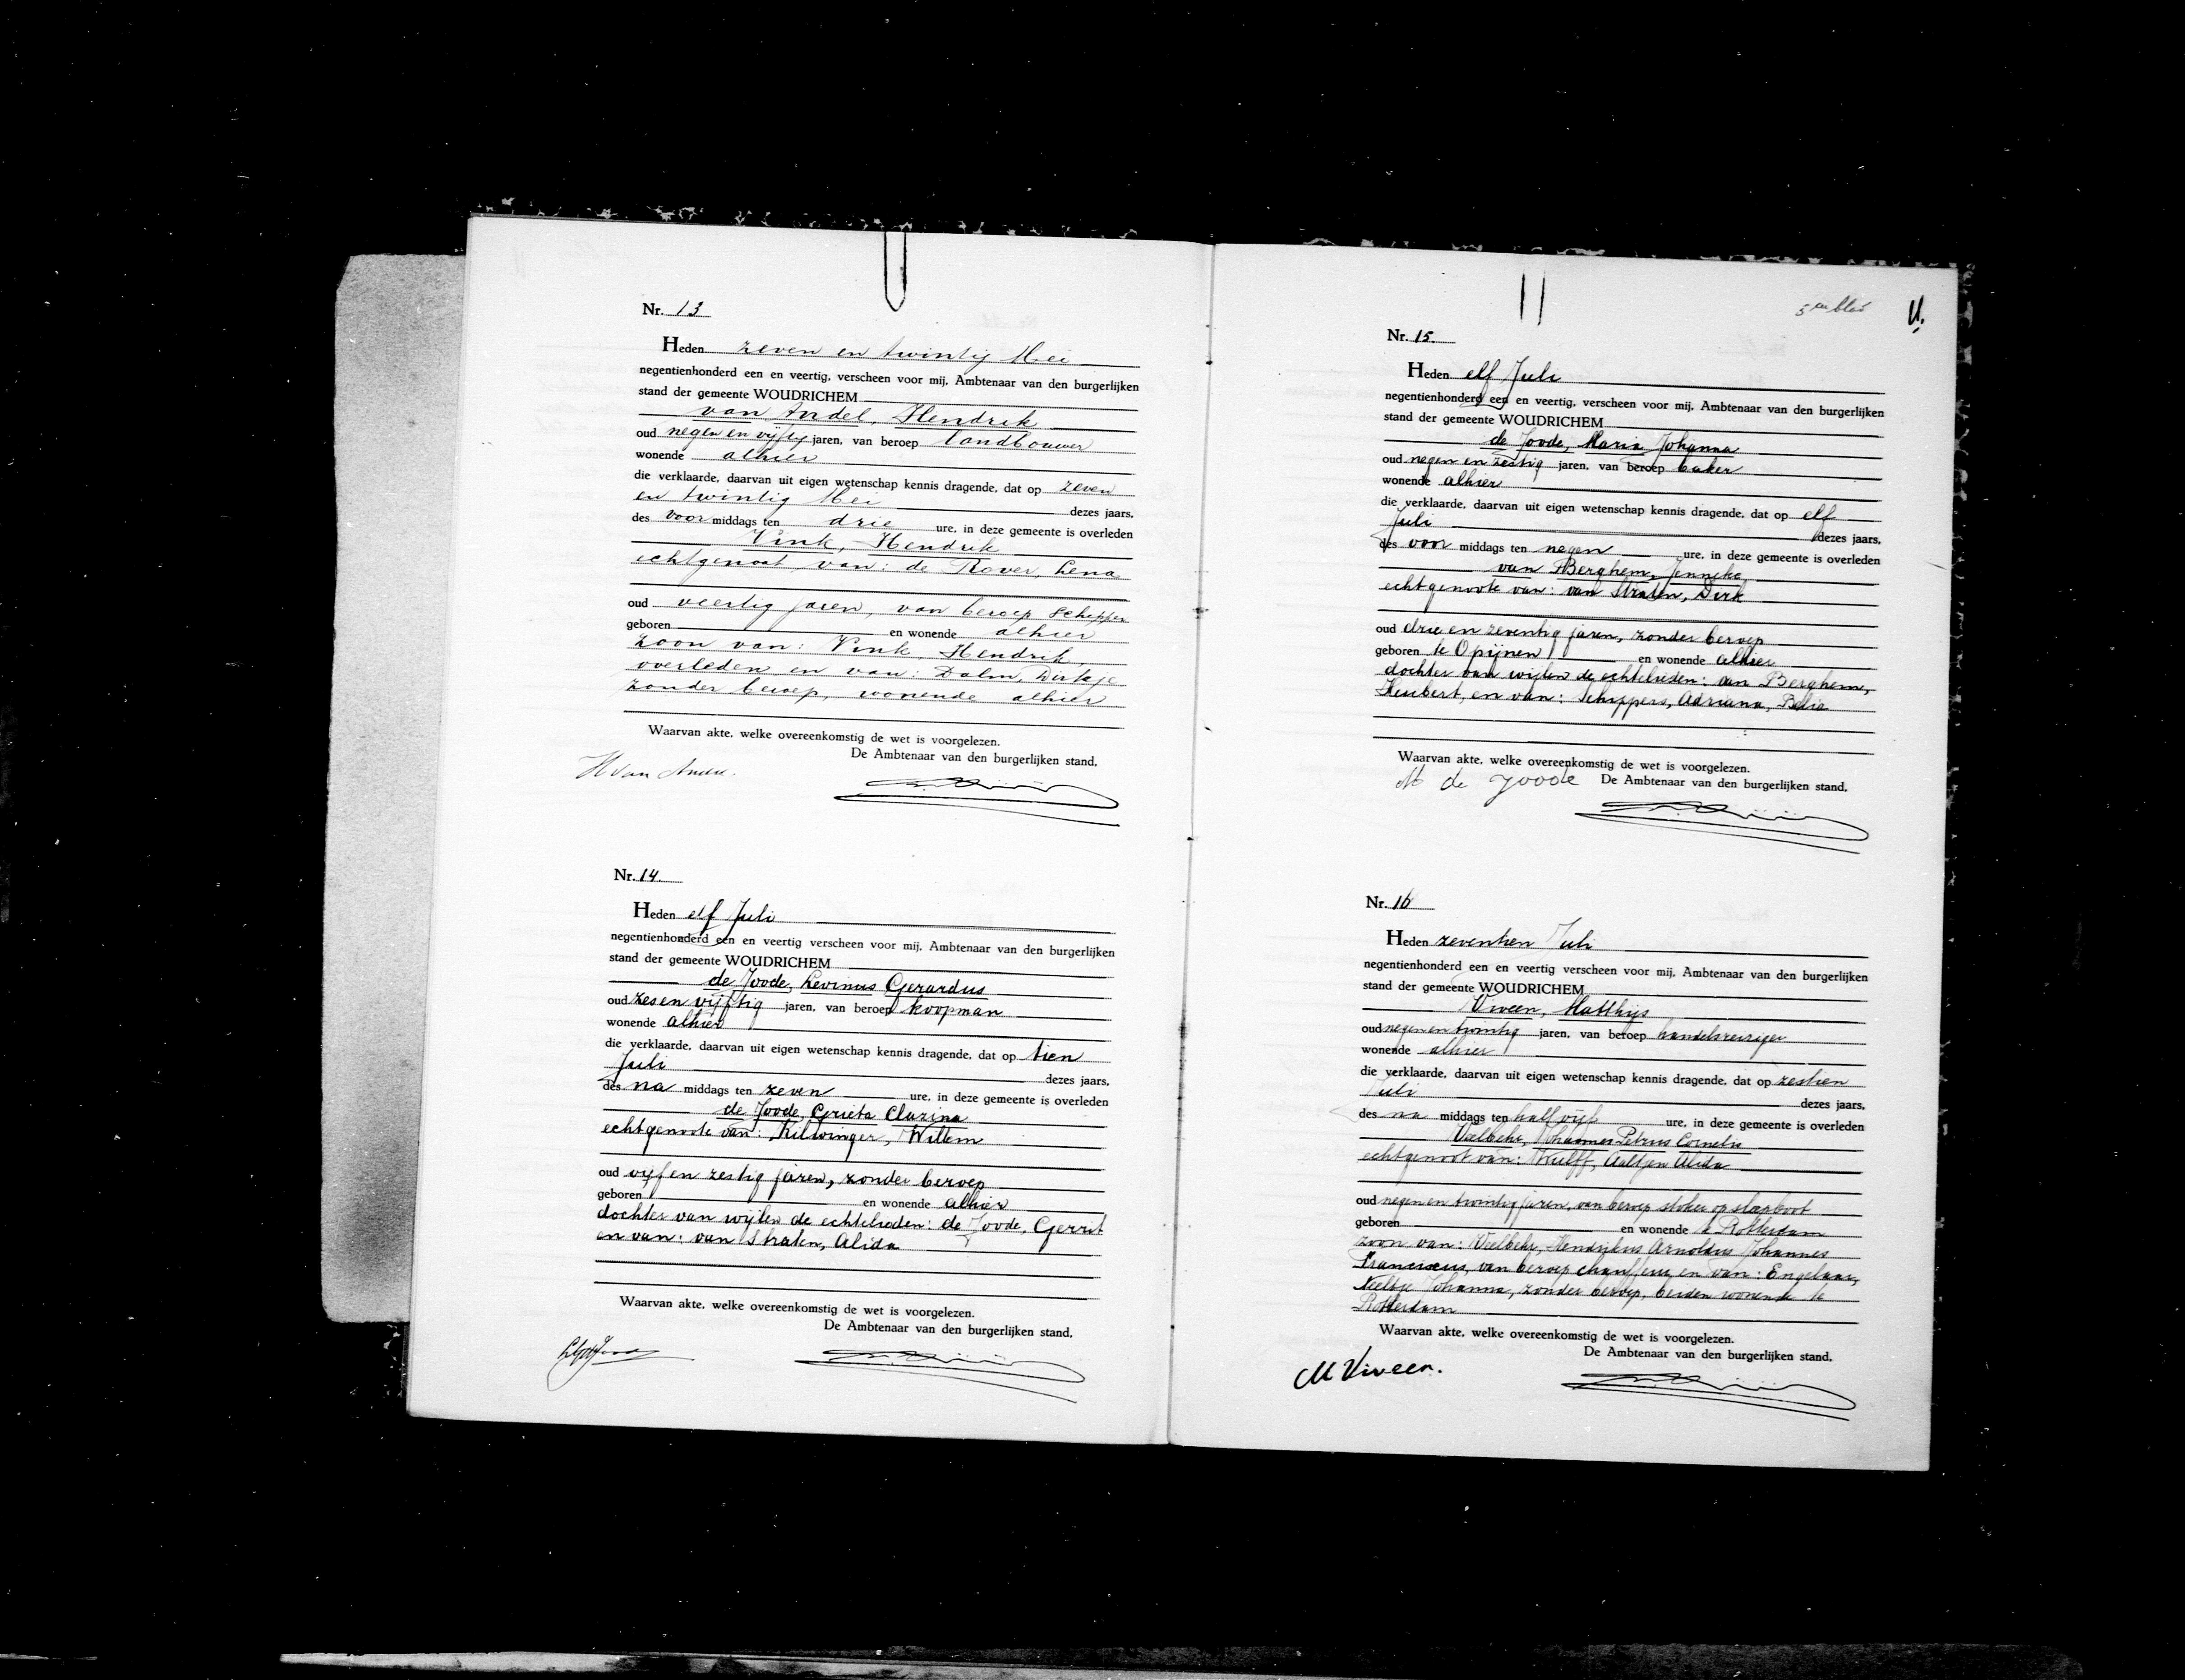 Nr. 13
Heden zeven en twintig Mei
negentienhonderd een en veertig, verscheen voor mij, Ambtenaar van den burgerlijken
stand der gemeente WOUDRICHEM
van Andel, Hendrik
oud negen en vijftig jaren, van beroep landbouwer
wonende alhier
die verklaarde, daarvan uit eigen wetenschap kennis dragende, dat op zeven
en twintig Mei dezes jaars,
des voor middags ten drie ure, in deze gemeente is overleden
Vink, Hendrik
echtgenoot van: de Rover, Lena
oud veertig jaren, van beroep schipper
geboren en wonende alhier
zoon van: Vink Hendrik,
overleden en van: Dalm, Dirkje
zonder beroep, wonende alhier
Waarvan akte, welke overeenkomstig de wet is voorgelezen.
De Ambtenaar van den burgerlijken stand,
H van Andel.
Nr. 14.
Heden elf Juli
negentienhonderd een en veertig verscheen voor mij, Ambtenaar van den burgerlijken
stand der gemeente WOUDRICHEM
de Joode, Levinus Gerardus
oud zes en vijftig jaren, van beroep koopman
wonende alhier
die verklaarde, daarvan uit eigen wetenschap kennis dragende, dat op tien
Juli dezes jaars,
des na middags ten zeven ure, in deze gemeente is overleden
de Joode, Grieta Clazina
echtgenoote van: Kilwinger, Willem
oud vijf en zestig jaren, zonder beroep
geboren en wonende alhier
dochter van wijlen de echtelieden: de Joode, Gerrit
en van: van Straten, Alida
Waarvan akte, welke overeenkomstig de wet is voorgelezen.
De Ambtenaar van den burgerlijken stand,
5de blad
11.
Nr. 15.
Heden elf Juli
negentienhonderd een en veertig, verscheen voor mij, Ambtenaar van den burgerlijken
stand der gemeente WOUDRICHEM
de Joode, Maria Johanna
oud negen en zestig jaren, van beroep baker
wonende alhier
die verklaarde, daarvan uit eigen wetenschap kennis dragende, dat op elf
Juli dezes jaars,
des voor middags ten negen ure, in deze gemeente is overleden
van Berghem, Jenneke
echtgenoote van: van Straten, Dirk
oud drie en zeventig jaren, zonder beroep
geboren te Opijnen en wonende alhier
dochter van wijlen de echtelieden: van Berghem,
Huibert, en van: Schippers, Adriana, Belia
Waarvan akte, welke overeenkomstig de wet is voorgelezen.
M de Joode De Ambtenaar van den burgerlijken stand,
Nr. 16
Heden zeventien Juli
negentienhonderd een en veertig verscheen voor mij, Ambtenaar van den burgerlijken
stand der gemeente WOUDRICHEM
Viveen, Matthijs
oud negen en twintig jaren, van beroep handelsreiziger
wonende alhier
die verklaarde, daarvan uit eigen wetenschap kennis dragende, dat op zestien
Juli dezes jaars,
des na middags ten half vijf ure, in deze gemeente is overleden
Velbehr, Johannes Petrus Cornelis
echtgenoot van: Wulff, Aaltjen Alida
oud negen en twintig jaren, van beroep stoker op sleepboot
geboren en wonende te Rotterdam
zoon van: Velbehr, Hendrikus Arnoldus Johannes
Franciscus, van beroep chauffeur en van: Engelaar,
Neeltje Johanna, zonder beroep, beiden wonende te
Rotterdam
Waarvan akte, welke overeenkomstig de wet is voorgelezen.
De Ambtenaar van den burgerlijken stand,
M Viveen.